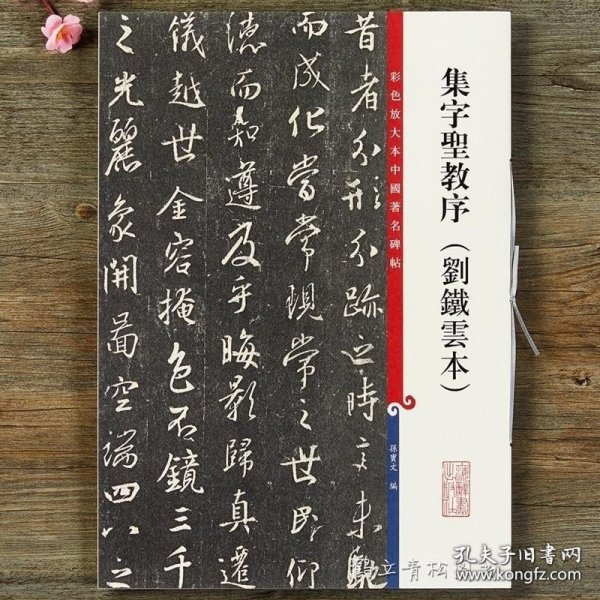 集字聖教序（劉鐵雲本）
彩色放大本中國著名碑帖
孫寶文 編
昔者分形分跡之時言未馳
而成化當常現常之世民仰
德而知遵及乎晦影歸真遷
儀越世金容掩色不鏡三千
之光麗象開圖空端四八之
立青松
孔夫子旧书网
www.kongfz.com